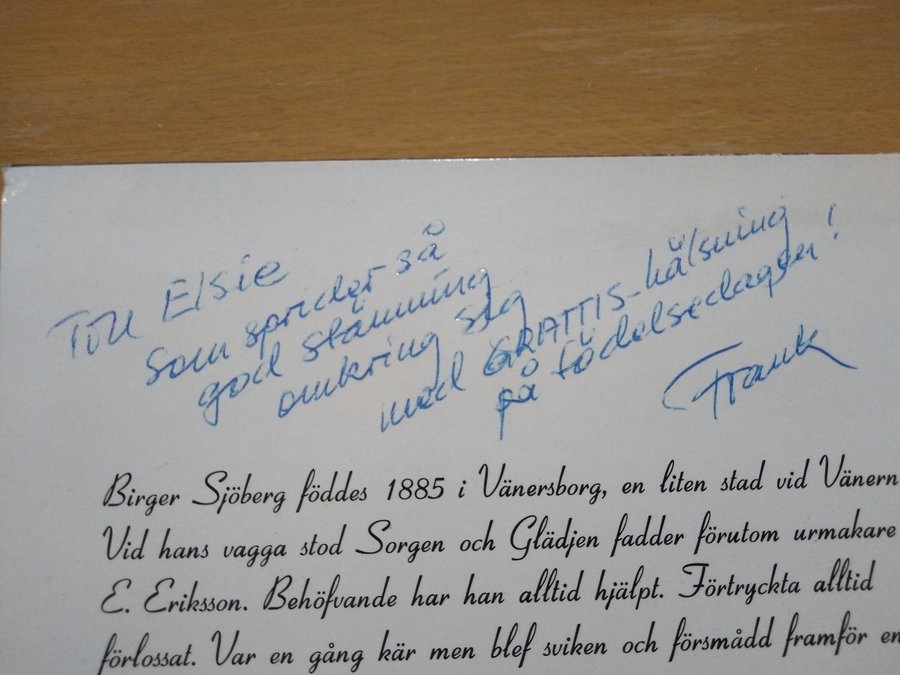 Till Elsie
som sprider så
god stämning
omkring sig
med GRATTIS-hälsning
på födelsedagen!
Frank
Birger Sjöberg föddes 1885 i Vänersborg, en liten stad vid Vänern
Vid hans vagga stod Sorgen och Glädjen fadder förutom urmakare
E. Eriksson. Behöfvande har han alltid hjälpt. Förtryckta alltid
förlossat. Var en gång kär men blef sviken och försmådd framför en